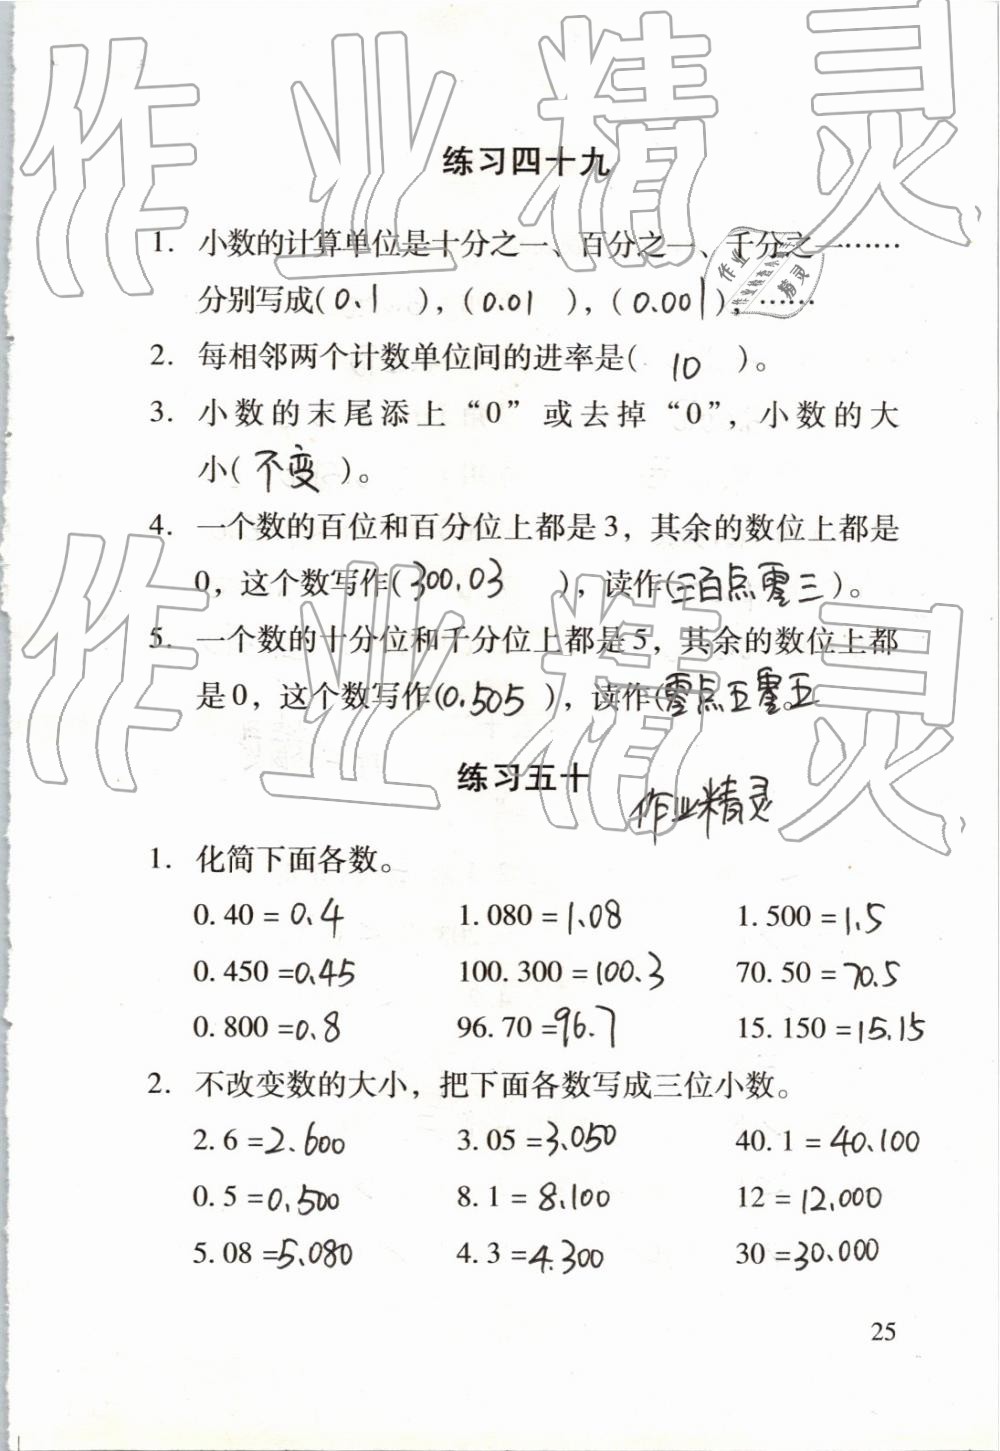 作业精灵
练习四十九
1. 小数的计算单位是十分之一、百分之一、千分之一……
分别写成(0.1),(0.01),(0.001),……
2. 每相邻两个计数单位间的进率是(10)。
3. 小数的末尾添上“0”或去掉“0”,小数的大
小(不变)。
4. 一个数的百位和百分位上都是3,其余的数位上都是
0,这个数写作(300.03),读作(三百点零三)。
5. 一个数的十分位和千分位上都是5,其余的数位上都
是0,这个数写作(0.505),读作(零点五零五)。
作业精灵
练习五十
作业精灵
1. 化简下面各数。
0.40=0.4 1.080=1.08 1.500=1.5
0.450=0.45 100.300=100.3 70.50=70.5
0.800=0.8 96.70=96.7 15.150=15.15
2. 不改变数的大小,把下面各数写成三位小数。
2.6=2.600 3.05=3.050 40.1=40.100
0.5=0.500 8.1=8.100 12=12.000
5.08=5.080 4.3=4.300 30=30.000
25